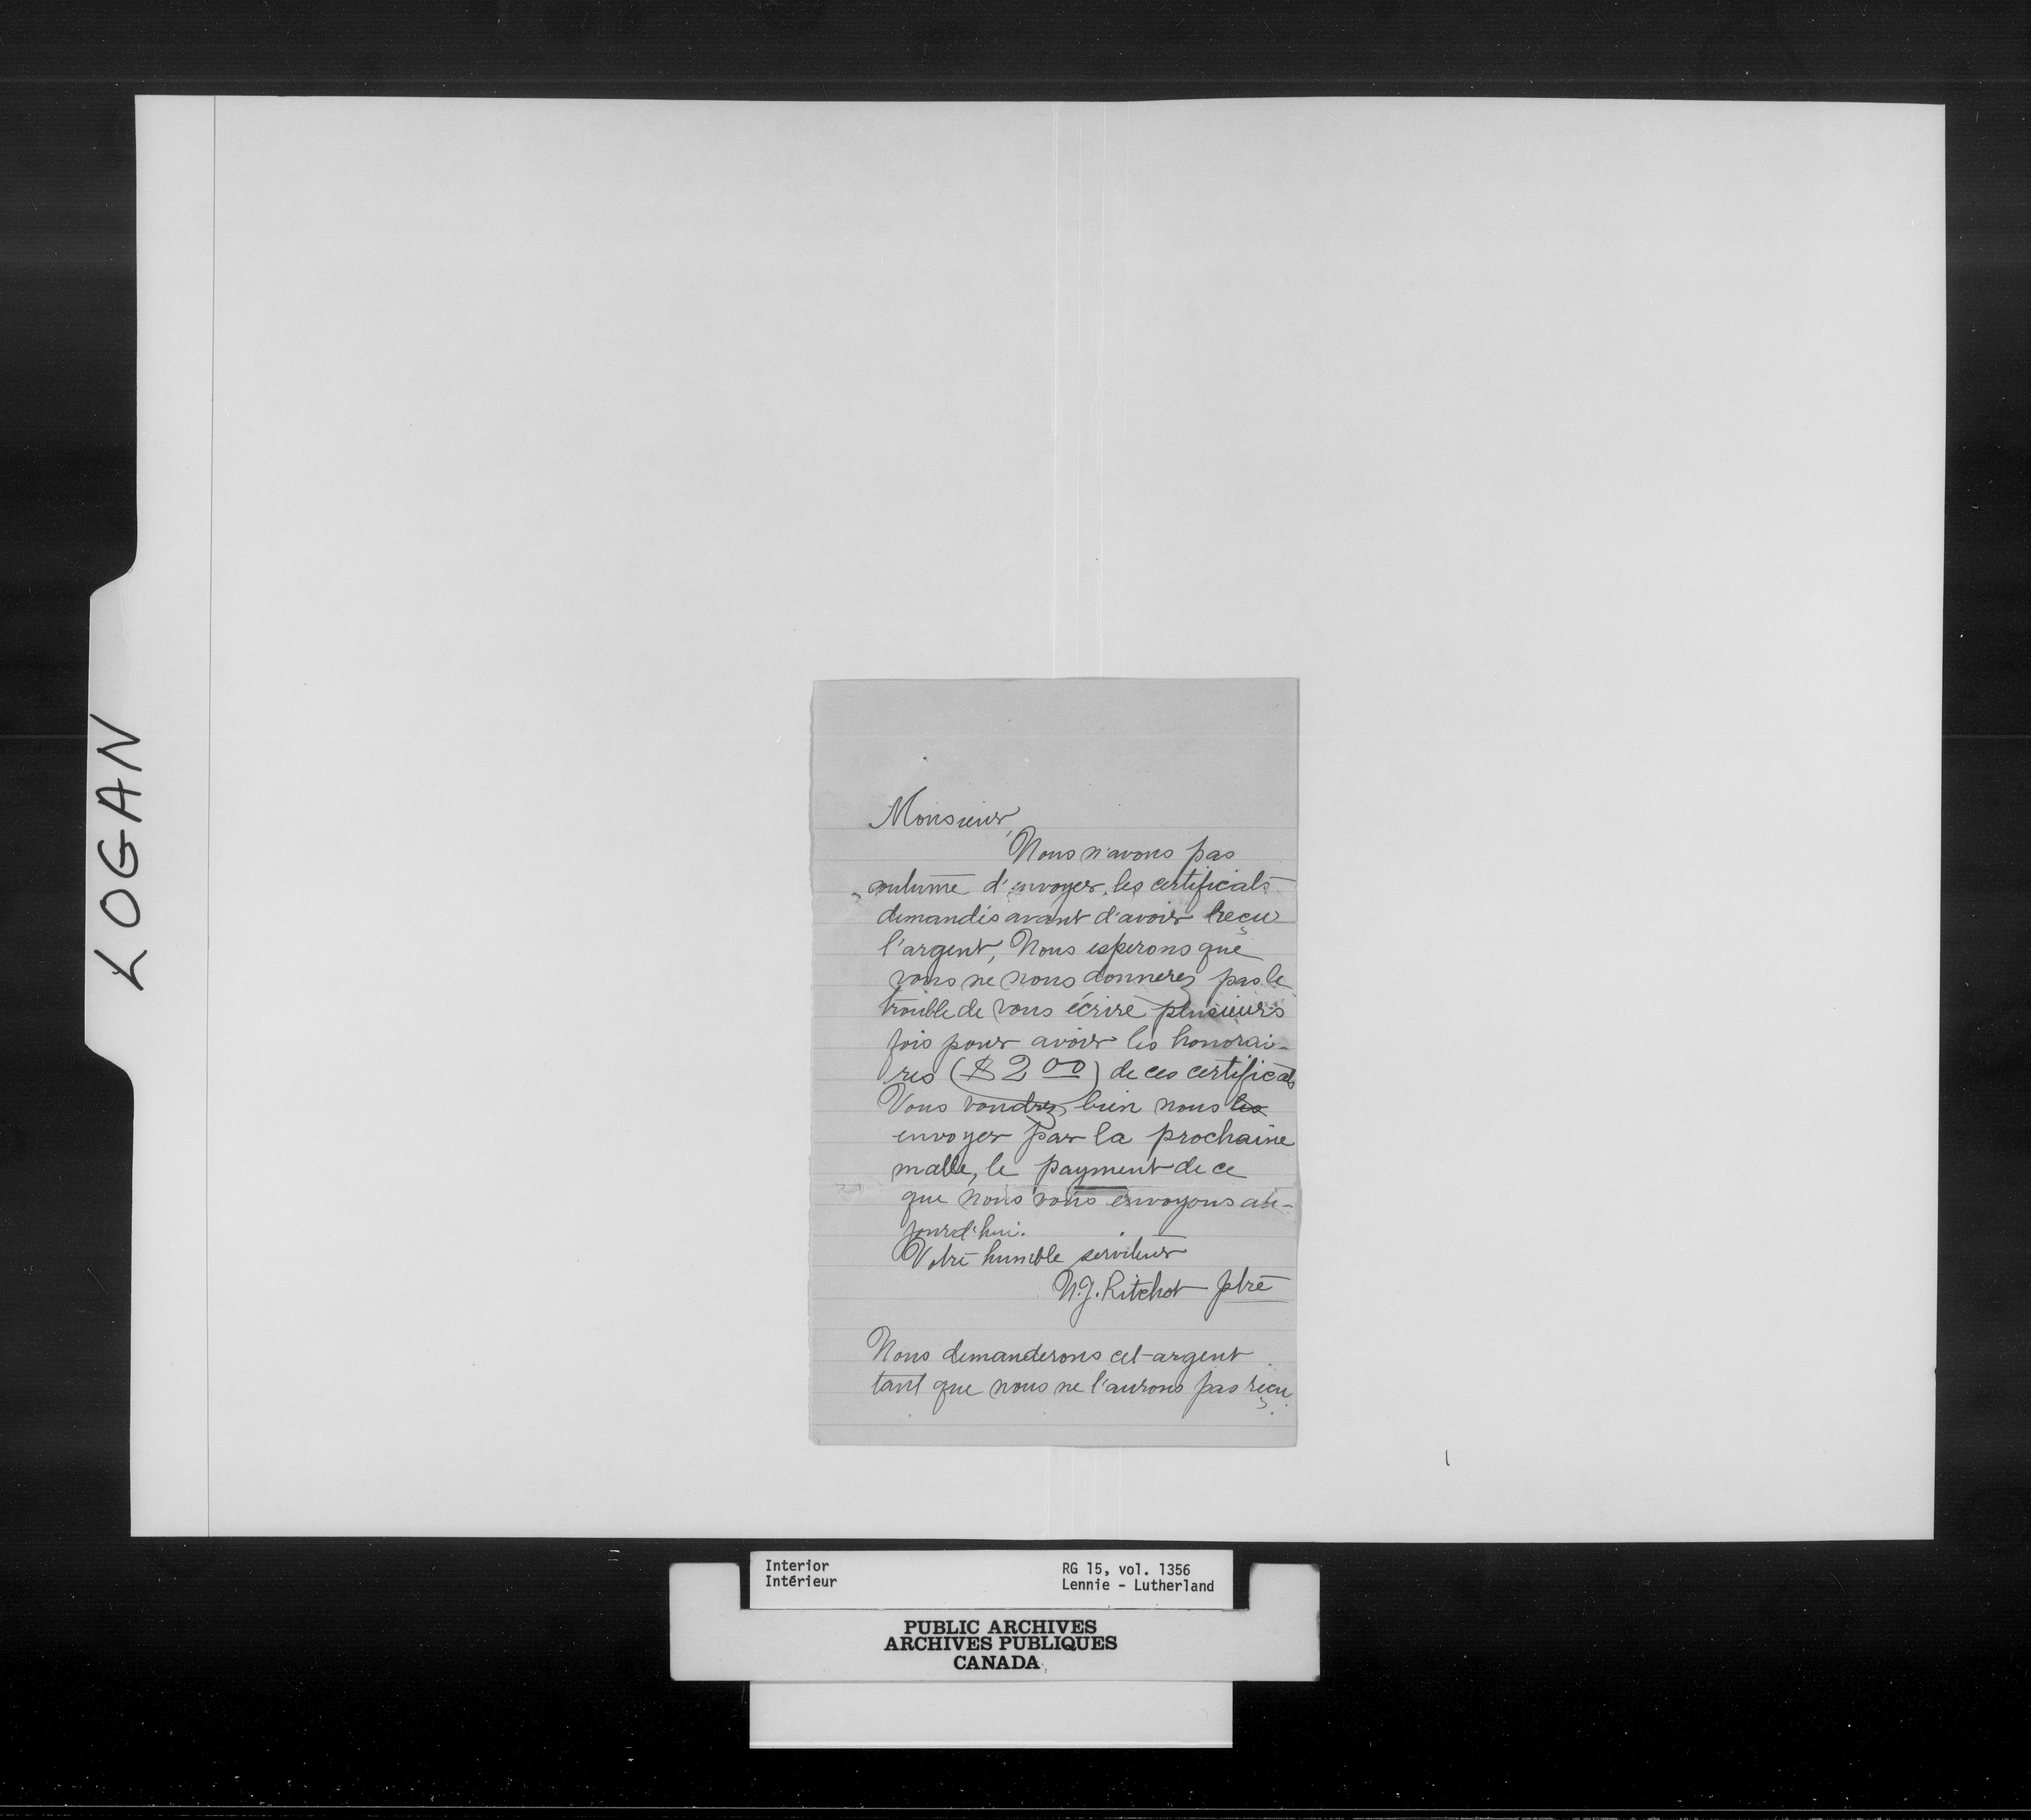 LOGAN
Monsieur,
Nous n'avons pas
coutume d'envoyer les certificats
demandés avant d'avoir reçu
l'argent, Nous esperons que
vous ne nous donnerez pas le
trouble de vous écrire plusieurs
fois pour avoir les honorai-
res ($2 00) de ces certificats
Vous voudrez bien nous les
envoyer par la prochaine
malle, le payment de ce
que nous vous envoyons au-
jourd'hui.
Votre humble serviteur
N.J. Ritchot ptre
Nous demanderons cet argent
tant que nous ne l'aurons pas reçu.
Interior
Intérieur
RG 15, vol. 1356
Lennie - Lutherland
PUBLIC ARCHIVES
ARCHIVES PUBLIQUES
CANADA